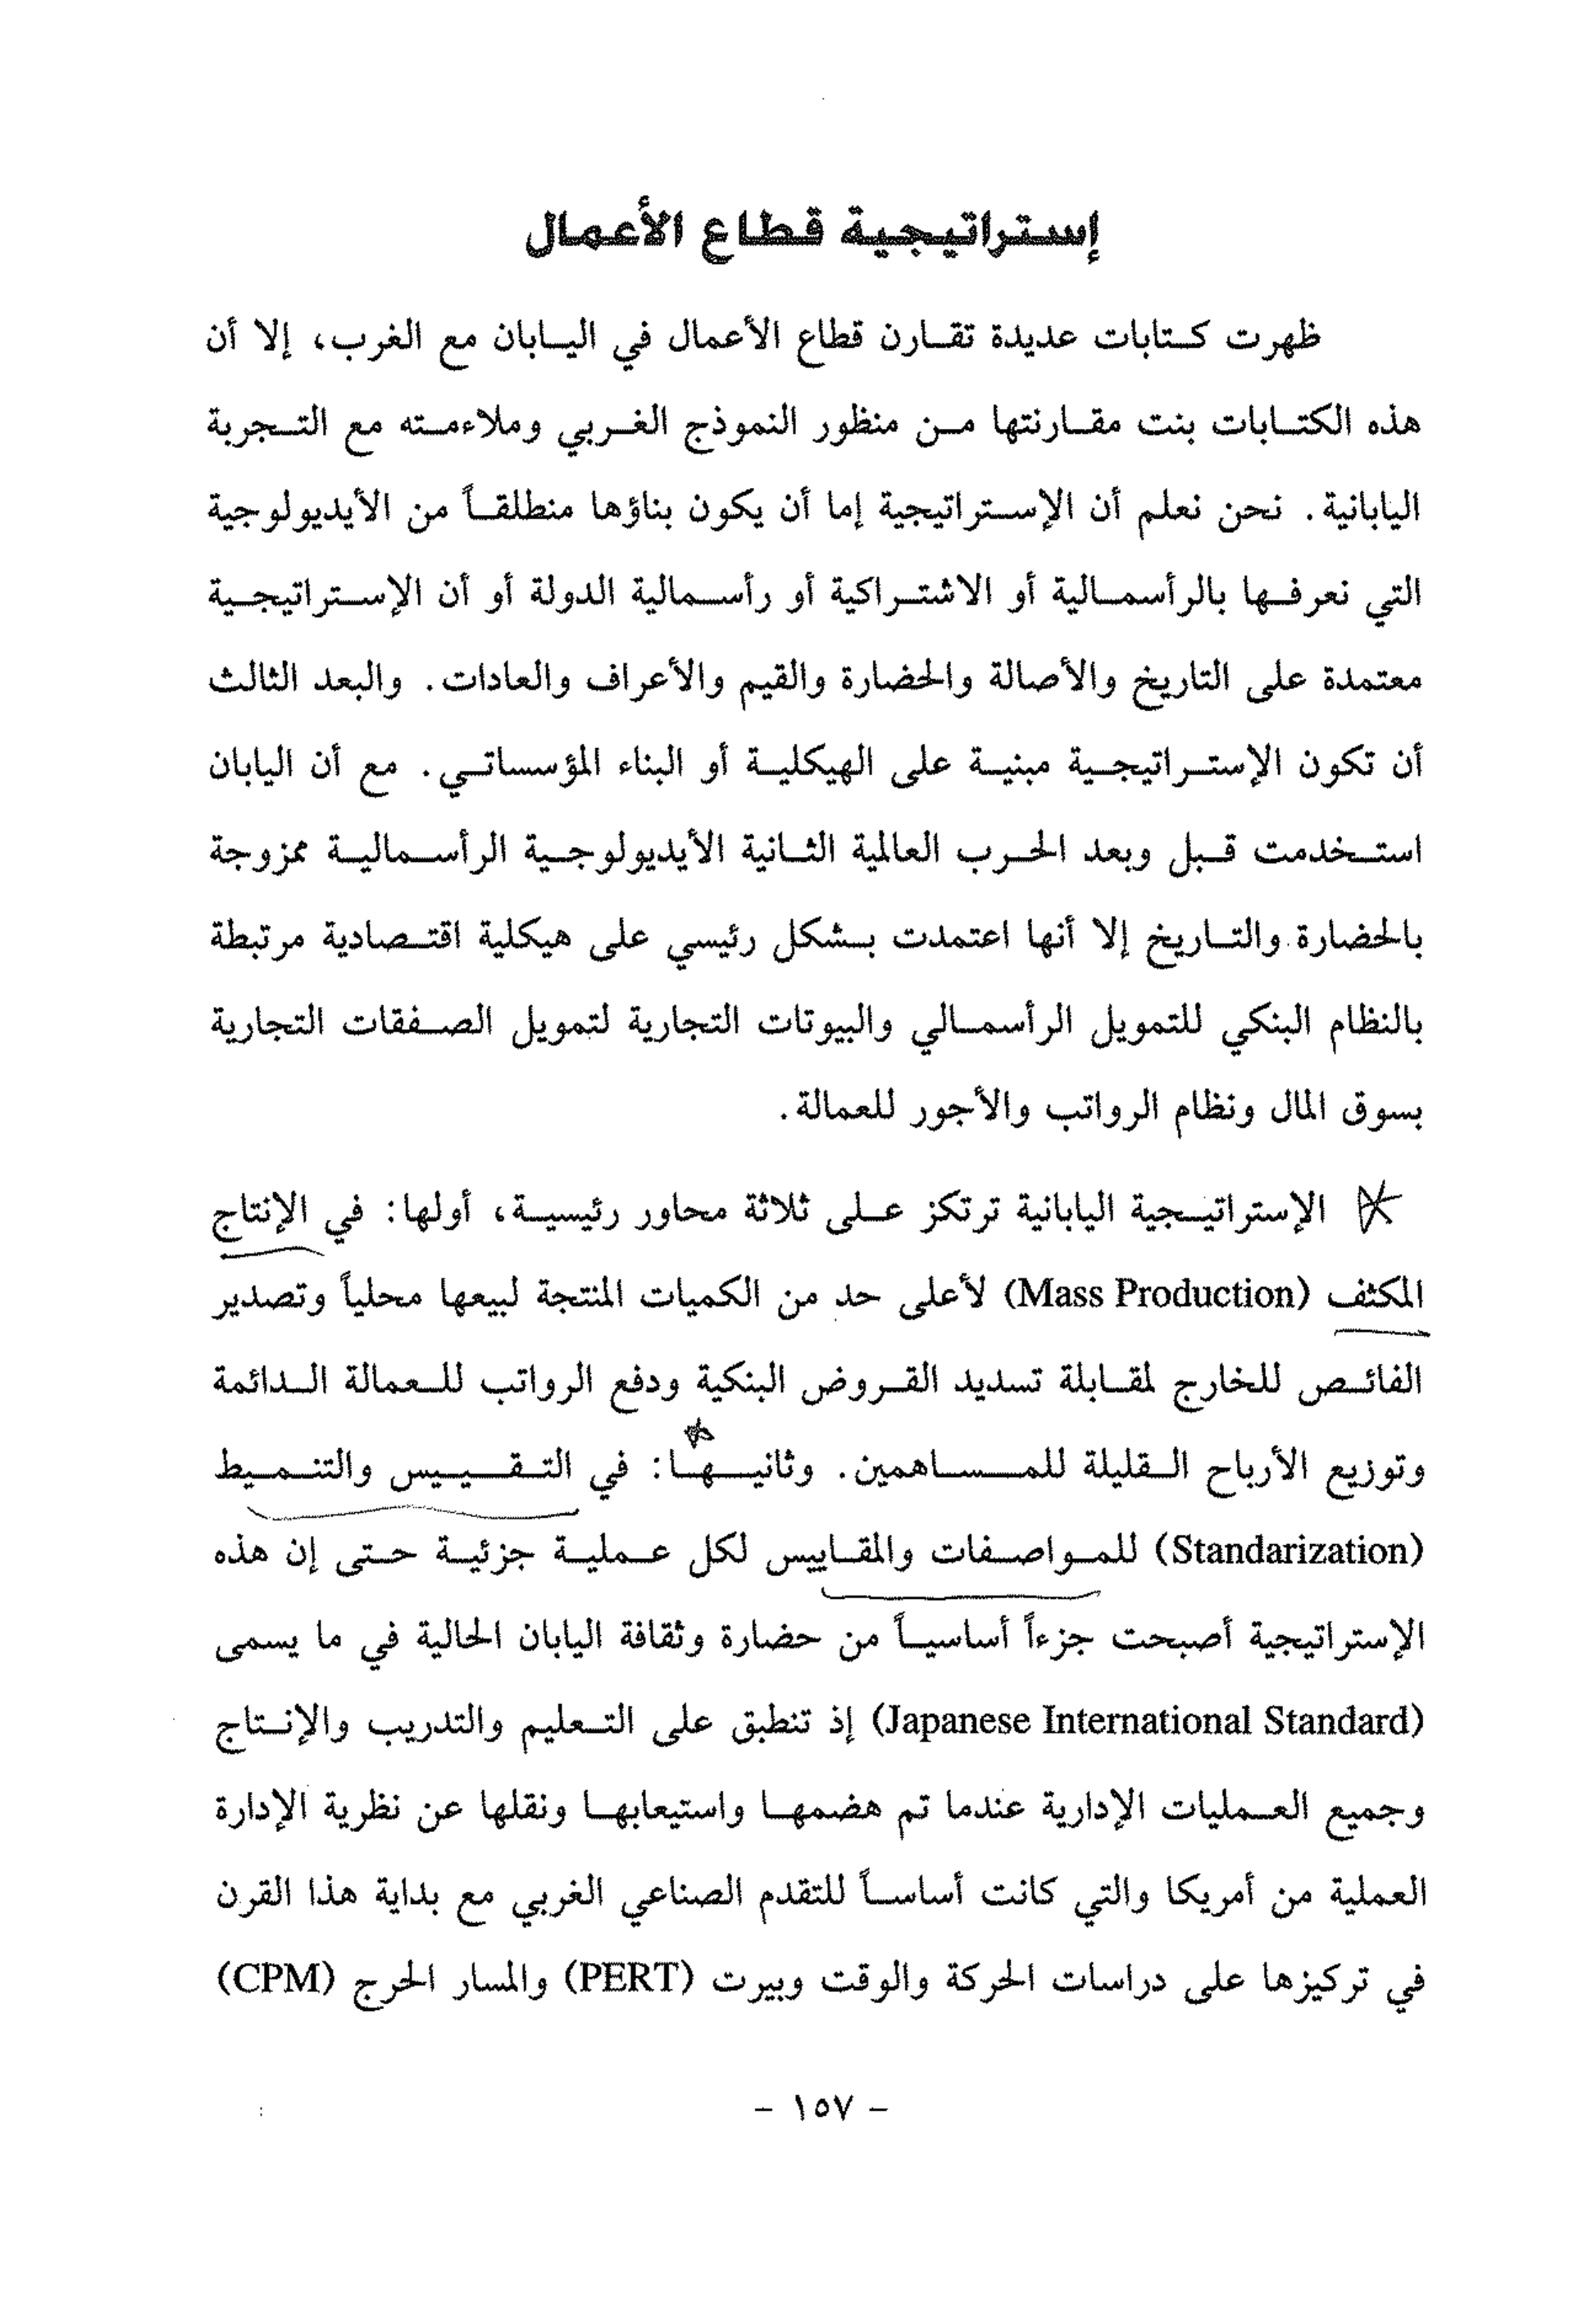 إستراتيجية قطاع الأعمال
ظهرت كتابات عديدة تقارن قطاع الأعمال في اليابان مع الغرب، إلا أن
هذه الكتابات بنت مقارنتها من منظور النموذج الغربي وملاءمته مع التجربة
اليابانية. نحن نعلم أن الإستراتيجية إما أن يكون بناؤها منطلقاً من الأيديولوجية
التي نعرفها بالرأسمالية أو الاشتراكية أو رأسمالية الدولة أو أن الإستراتيجية
معتمدة على التاريخ والأصالة والحضارة والقيم والأعراف والعادات. والبعد الثالث
أن تكون الإستراتيجية مبنية على الهيكلية أو البناء المؤسساتي. مع أن اليابان
استخدمت قبل وبعد الحرب العالمية الثانية الأيديولوجية الرأسمالية ممزوجة
بالحضارة والتاريخ إلا أنها اعتمدت بشكل رئيسي على هيكلية اقتصادية مرتبطة
بالنظام البنكي للتمويل الرأسمالي والبيوتات التجارية لتمويل الصفقات التجارية
بسوق المال ونظام الرواتب والأجور للعمالة.
الإستراتيجية اليابانية ترتكز على ثلاثة محاور رئيسية، أولها: في الإنتاج
المكثف (Mass Production) لأعلى حد من الكميات المنتجة لبيعها محلياً وتصدير
الفائص للخارج لمقابلة تسديد القروض البنكية ودفع الرواتب للعمالة الدائمة
وتوزيع الأرباح القليلة للمساهمين. وثانيها: في التقييس والتنميط
(Standarization) للمواصفات والمقاييس لكل عملية جزئية حتى إن هذه
الإستراتيجية أصبحت جزءاً أساسياً من حضارة وثقافة اليابان الحالية في ما يسمى
(Japanese International Standard) إذ تنطبق على التعليم والتدريب والإنتاج
وجميع العمليات الإدارية عندما تم هضمها واستيعابها ونقلها عن نظرية الإدارة
العملية من أمريكا والتي كانت أساساً للتقدم الصناعي الغربي مع بداية هذا القرن
في تركيزها على دراسات الحركة والوقت وبيرت (PERT) والمسار الحرج (CPM)
- ١٥٧ -